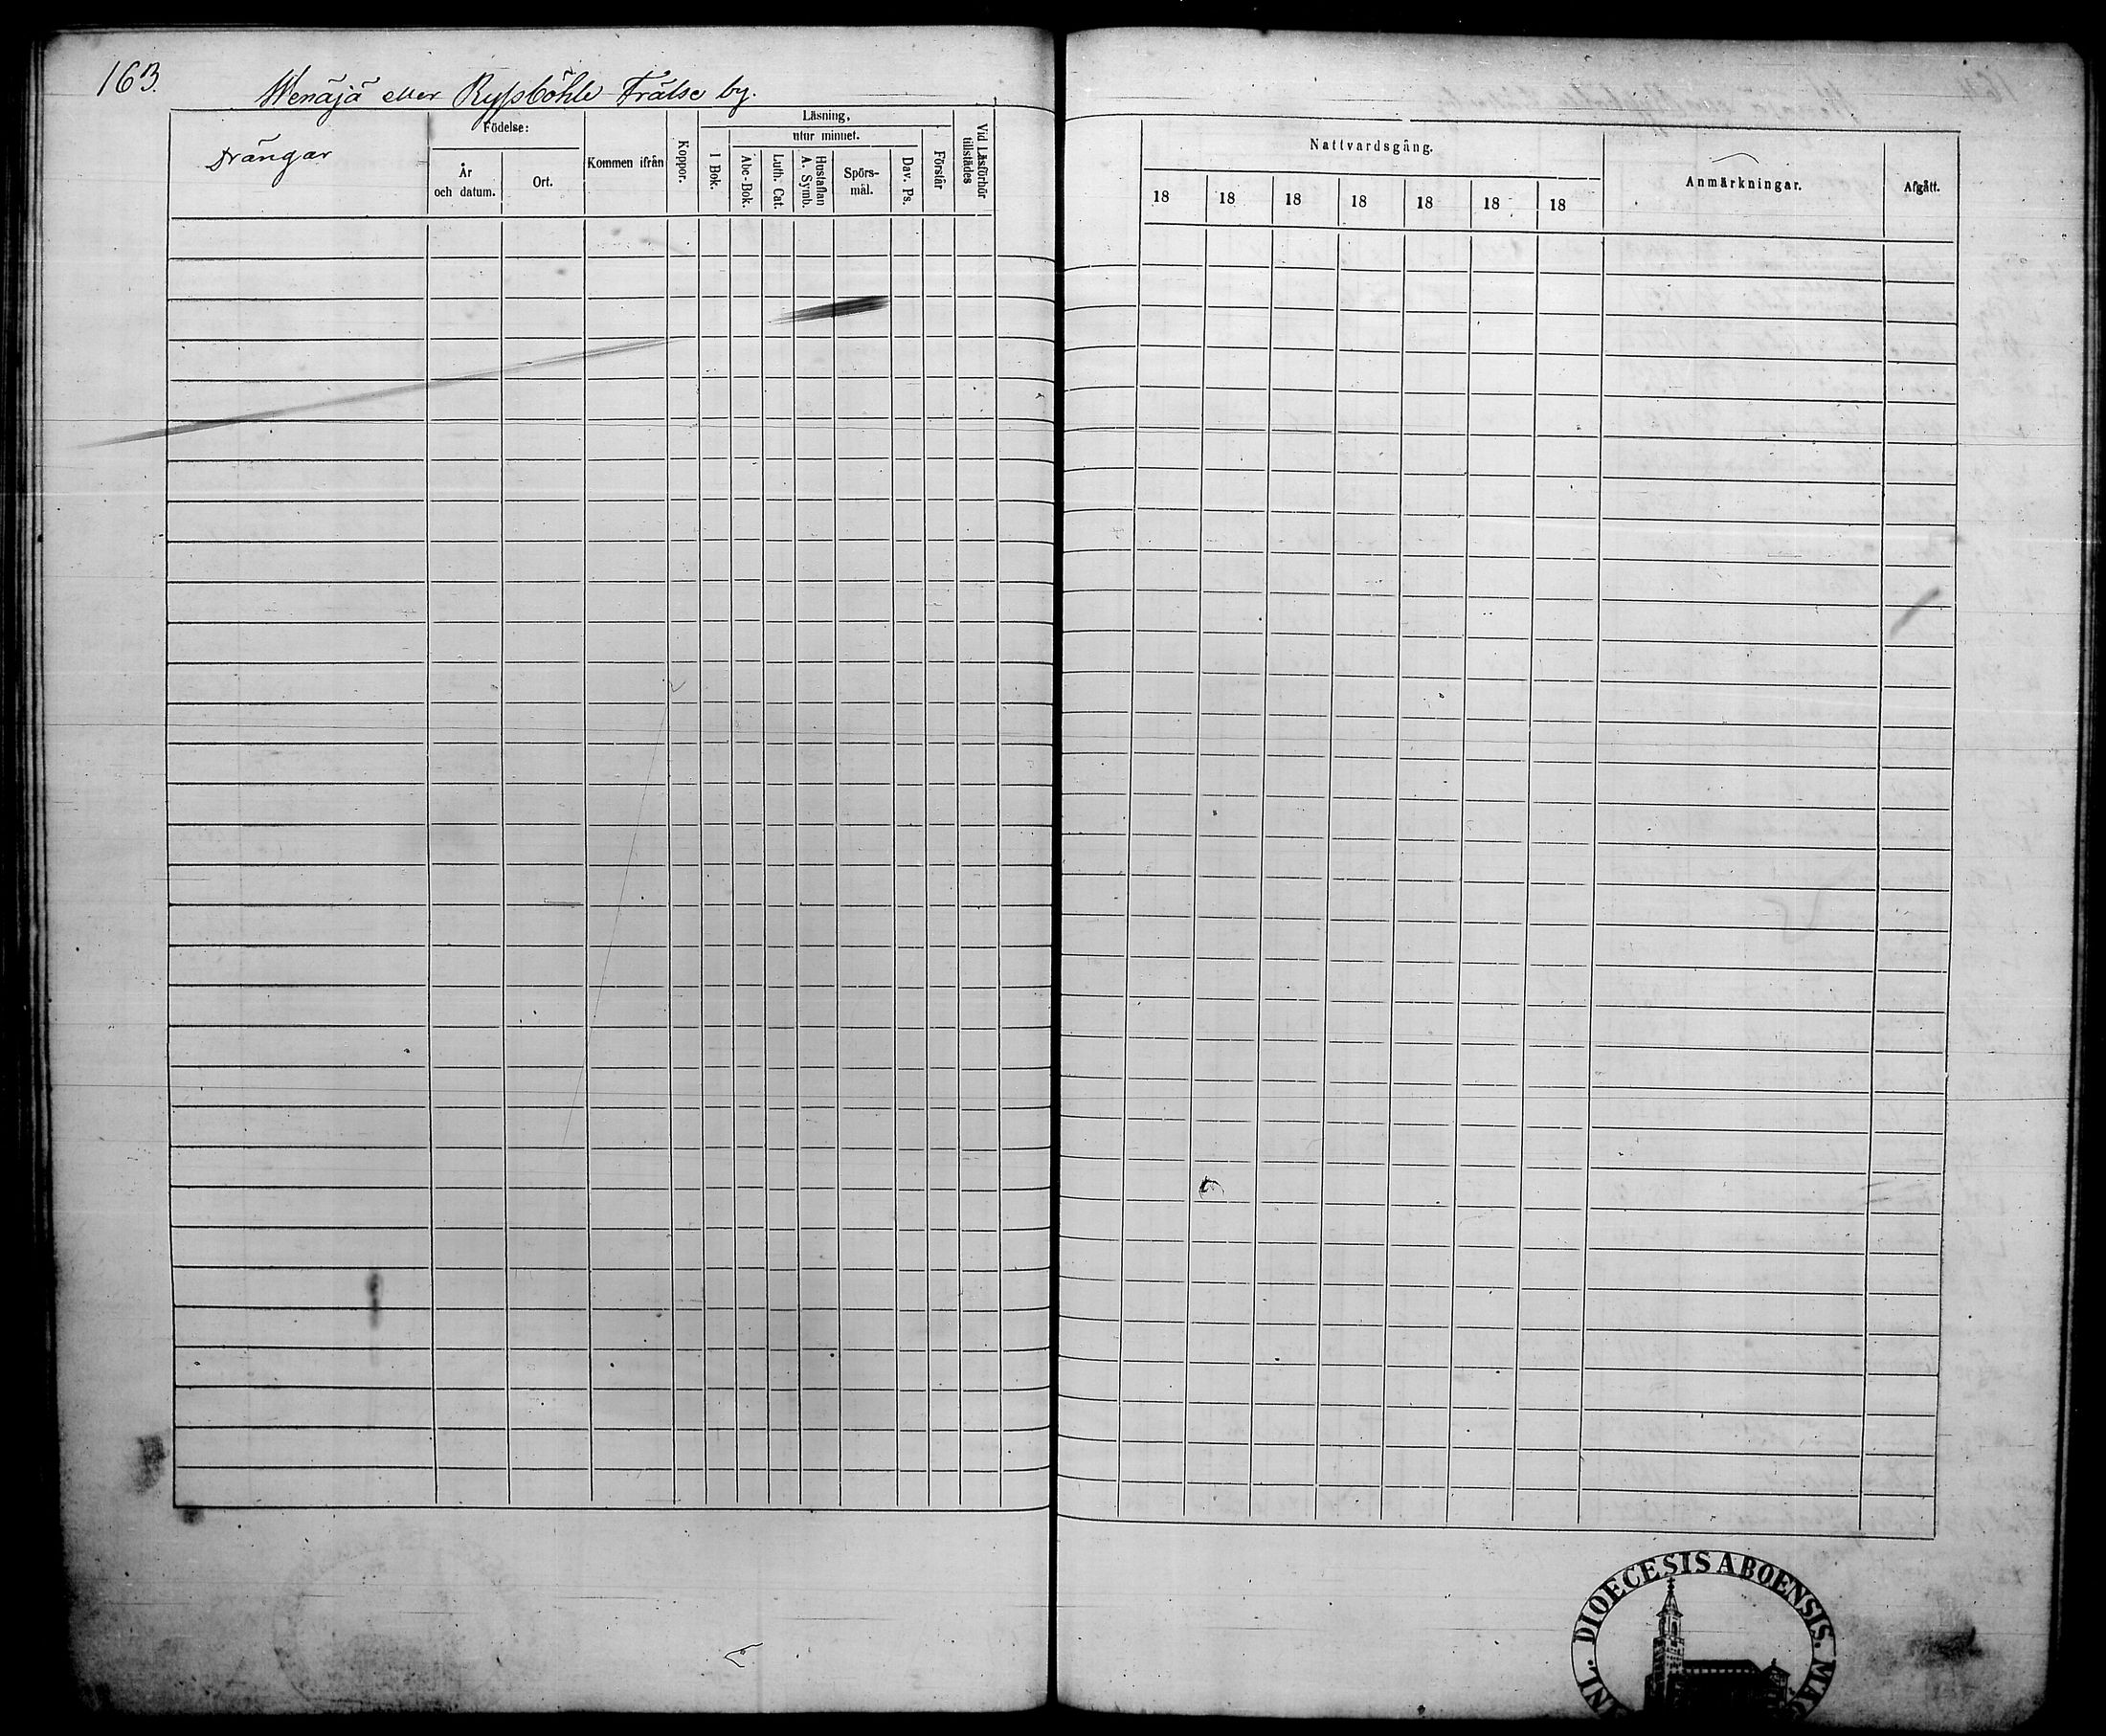 163.
Wenäjä eller Ryssböhle Frälse by.
Drängar
Födelse:
År
och datum.
Ort.
Kommen ifrån
Koppor.
Läsning,
utur minnet.
I Bok.
Abc-Bok.
Luth. Cat.
Hustaflan
A. Symb.
Spörs-
mål.
Dav. Ps.
Förstår
Vid Läsförhör
tillstädes
Nattvardsgång.
18 18 18 18 18 18 18
Anmärkningar.
Afgått.
DIOECESIS ABOENSIS.